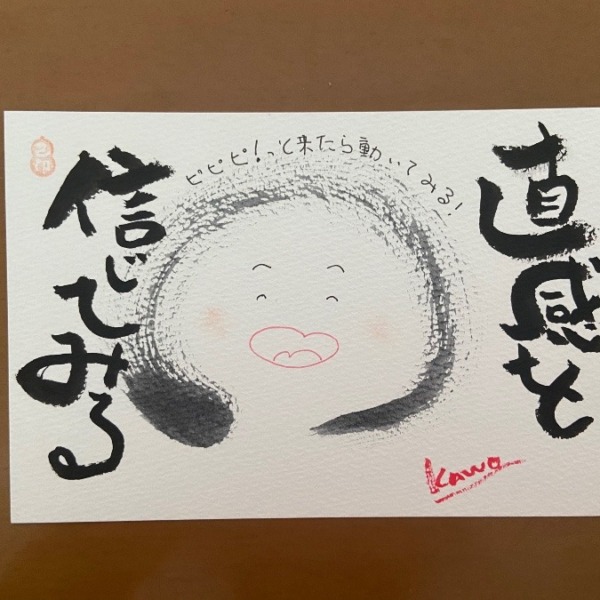 直感を
ピピピ!っと来たら動いてみる!
信じてみる
Kawa